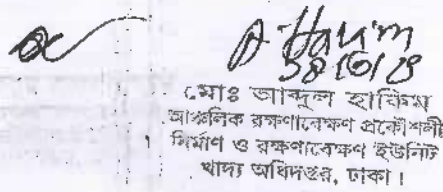 A Hakim
মোঃ আব্দুল হাকিম
আঞ্চলিক রক্ষণাবেক্ষণ প্রকৌশলী
নির্মাণ ও রক্ষণাবেক্ষণ ইউনিট
খাদ্য অধিদপ্তর, ঢাকা।